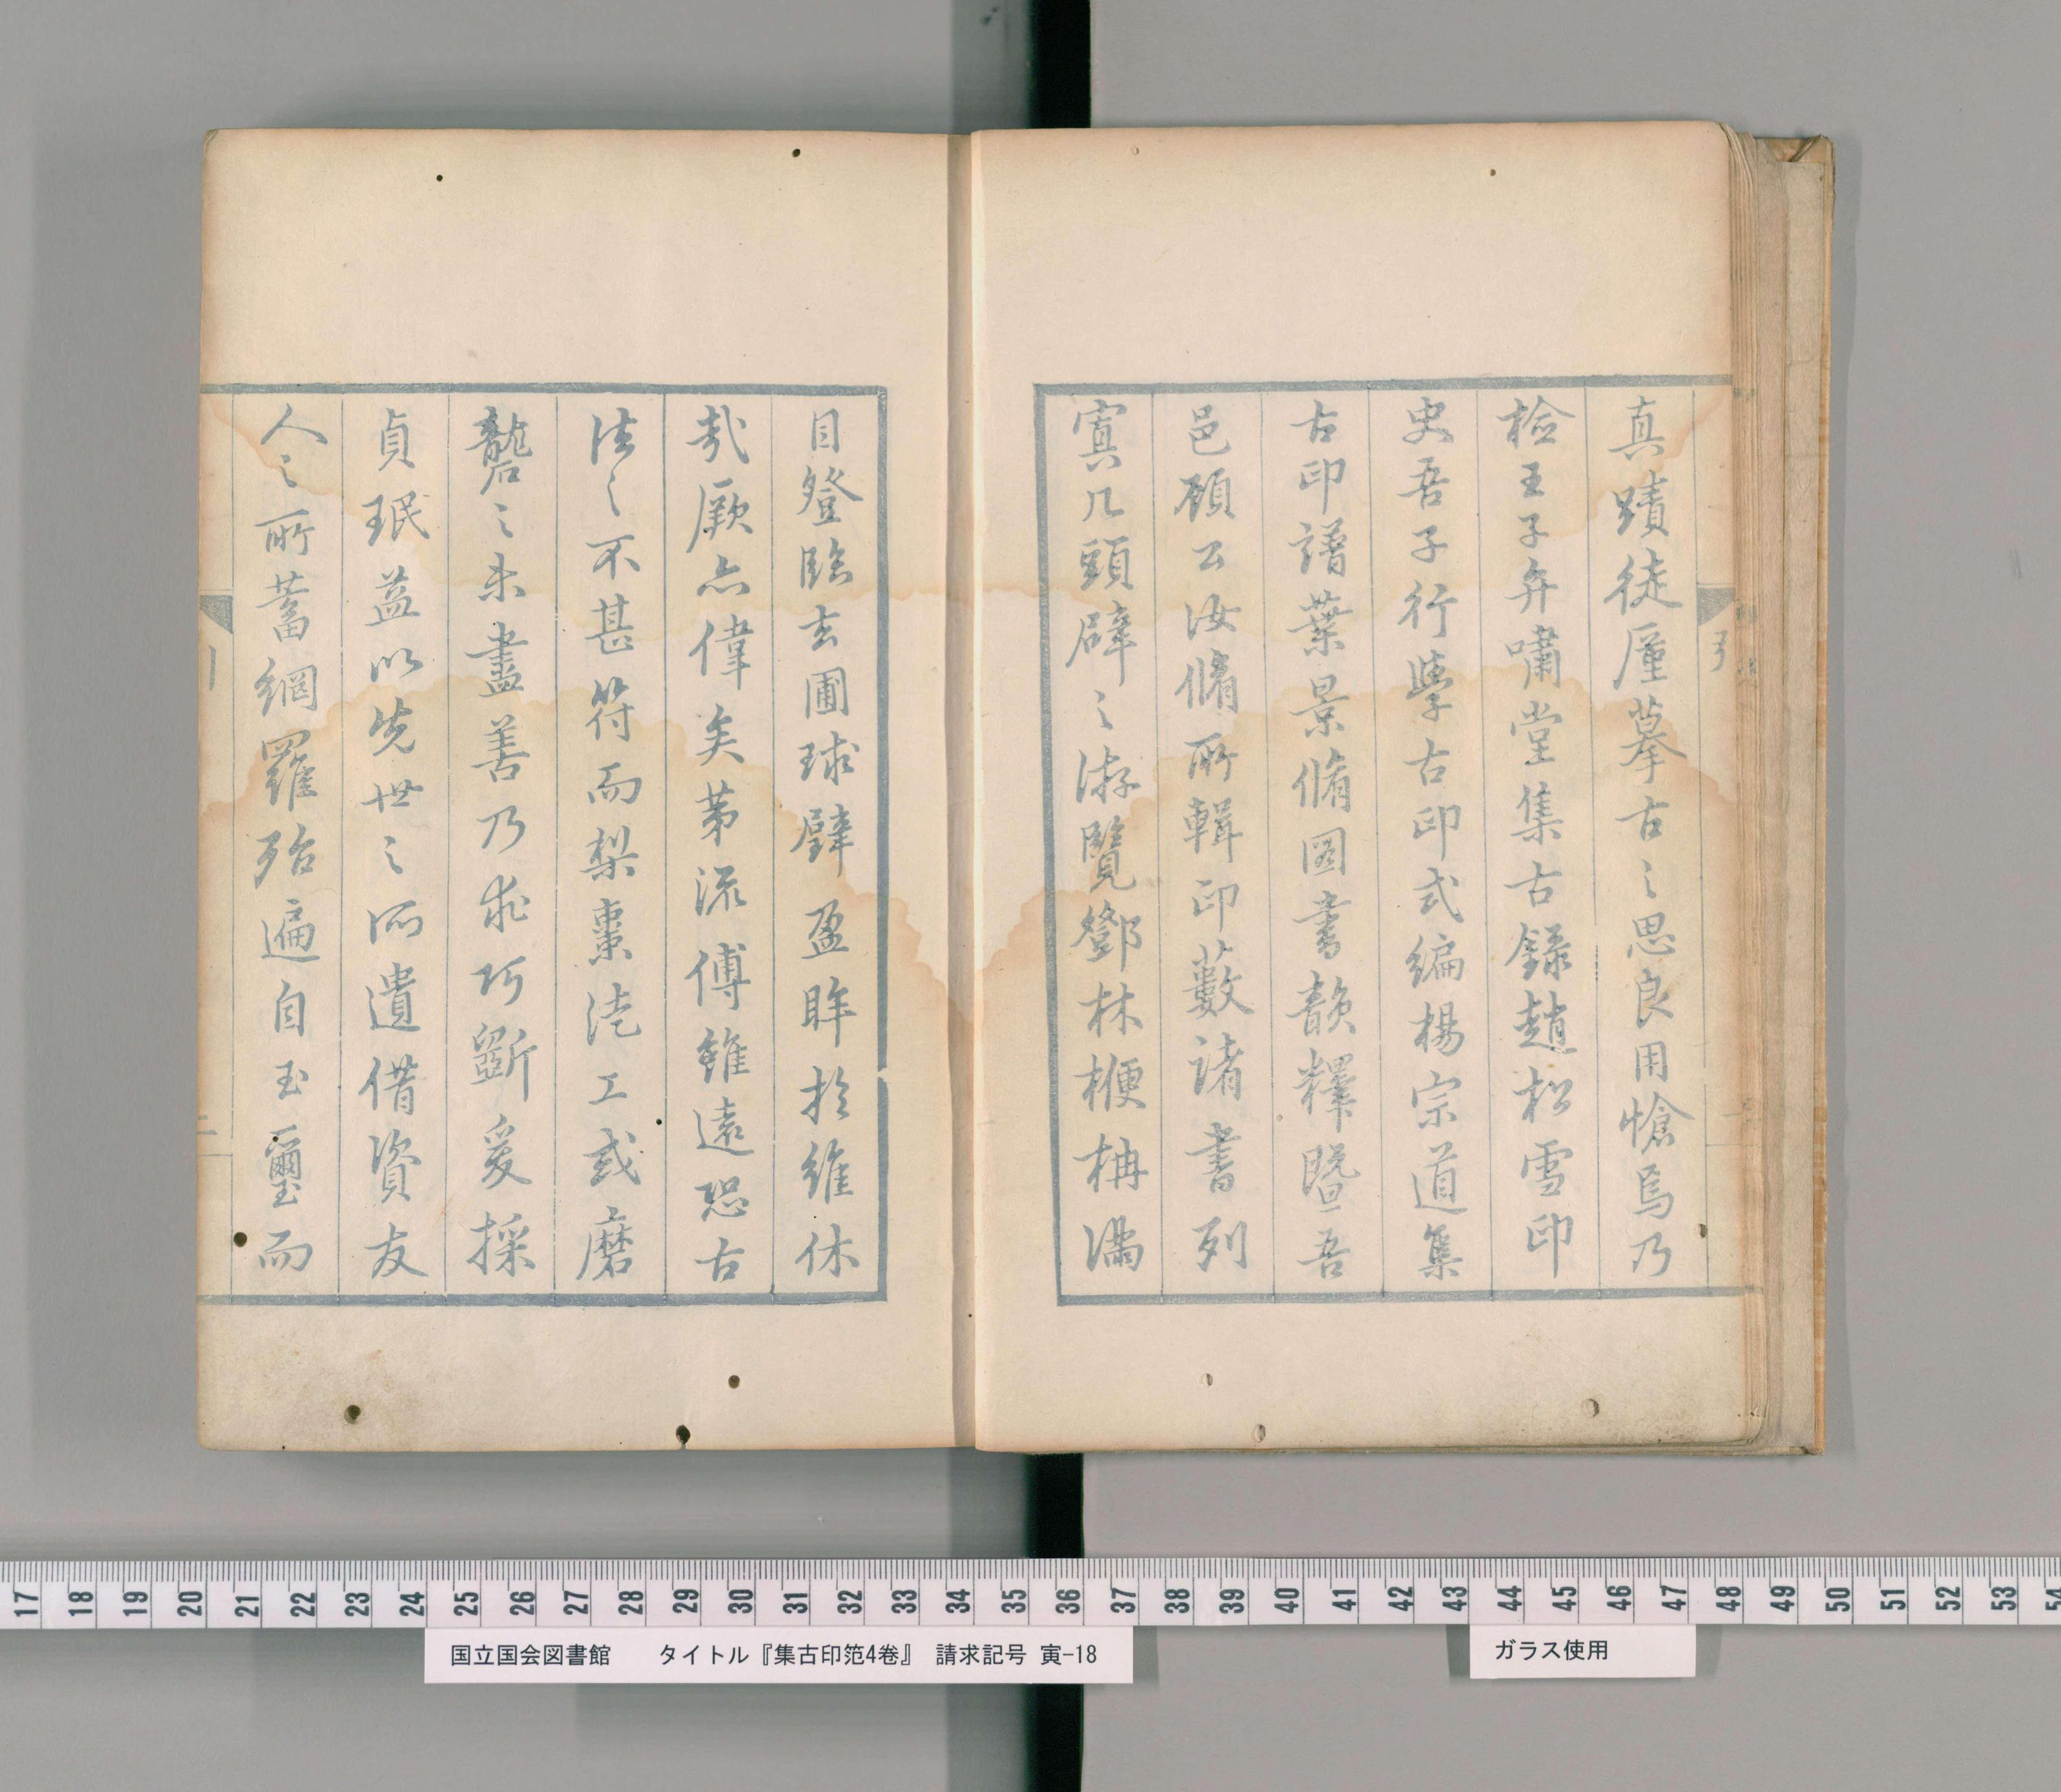 真蹟徒厪摹古之思良用愴焉乃
檢王子弁嘯堂集古録趙松雪印
史吾子行學古印式編楊宗道集
古印譜葉景脩圖書韻釋暨吾
邑顧公汝脩所輯印藪諸書列
寘几頭辟之游覽鄧林楩柟滿
目登臨玄圃球璧盈眸於維休
哉厥亦偉矣苐流傳雖遠恐古
法之不甚符而梨棗淺工或磨
礲之未盡善乃求巧斵爰採
貞珉益以先世之所遺借資友
人之所蓄網羅殆遍自玉璽而
17 18 19 20 21 22 23 24 25 26 27 28 29 30 31 32 33 34 35 36 37 38 39 40 41 42 43 44 45 46 47 48 49 50 51 52 53 54
国立国会図書館 タイトル『集古印笵4巻』 請求記号 寅-18
ガラス使用